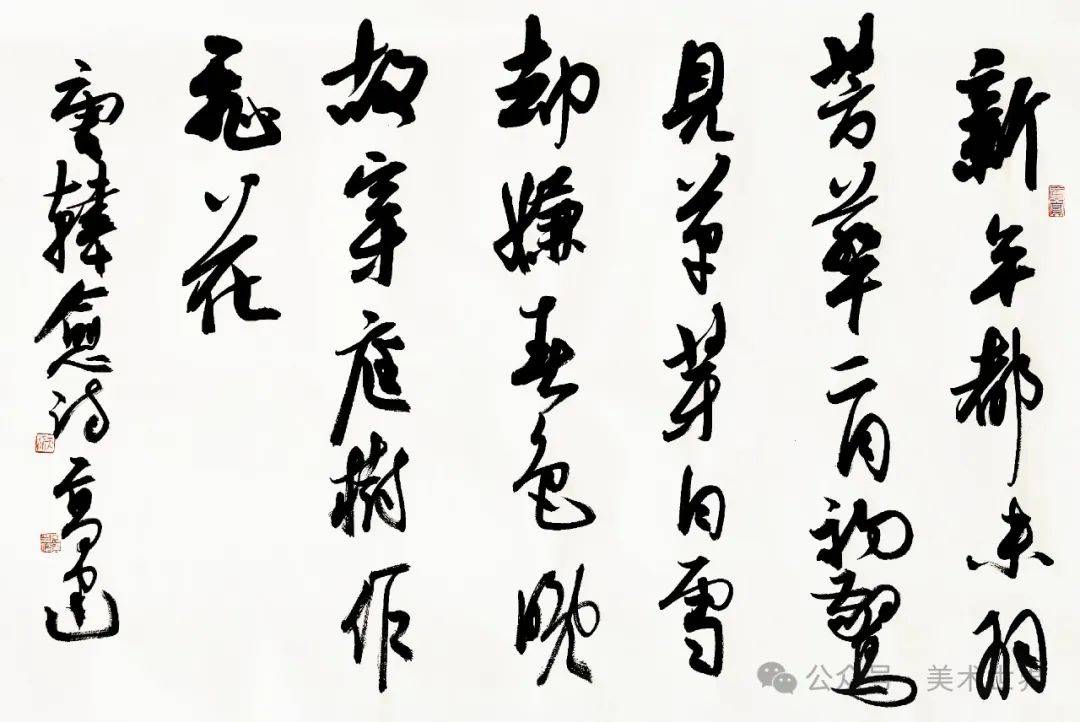 新年都未有
芳華二月初驚
見草芽白雪
却嫌春色晚
故穿庭樹作
飛花
韓愈詩 高
公众号 · 美术世界